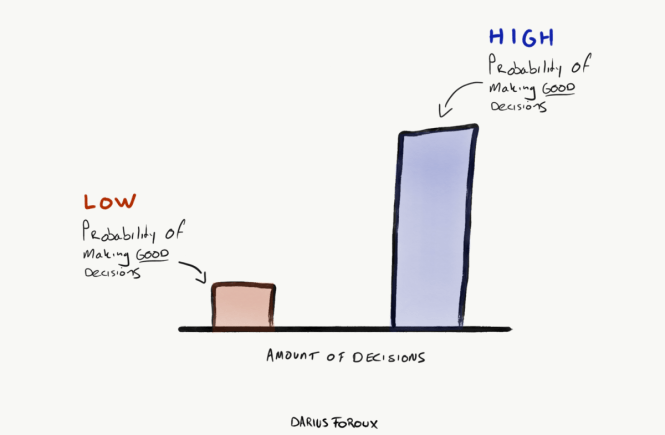 HIGH
Probability of
Making GOOD
Decisions
LOW
Probability of
Making GOOD
Decisions
AMOUNT OF DECISIONS
DARIUS FOROUX